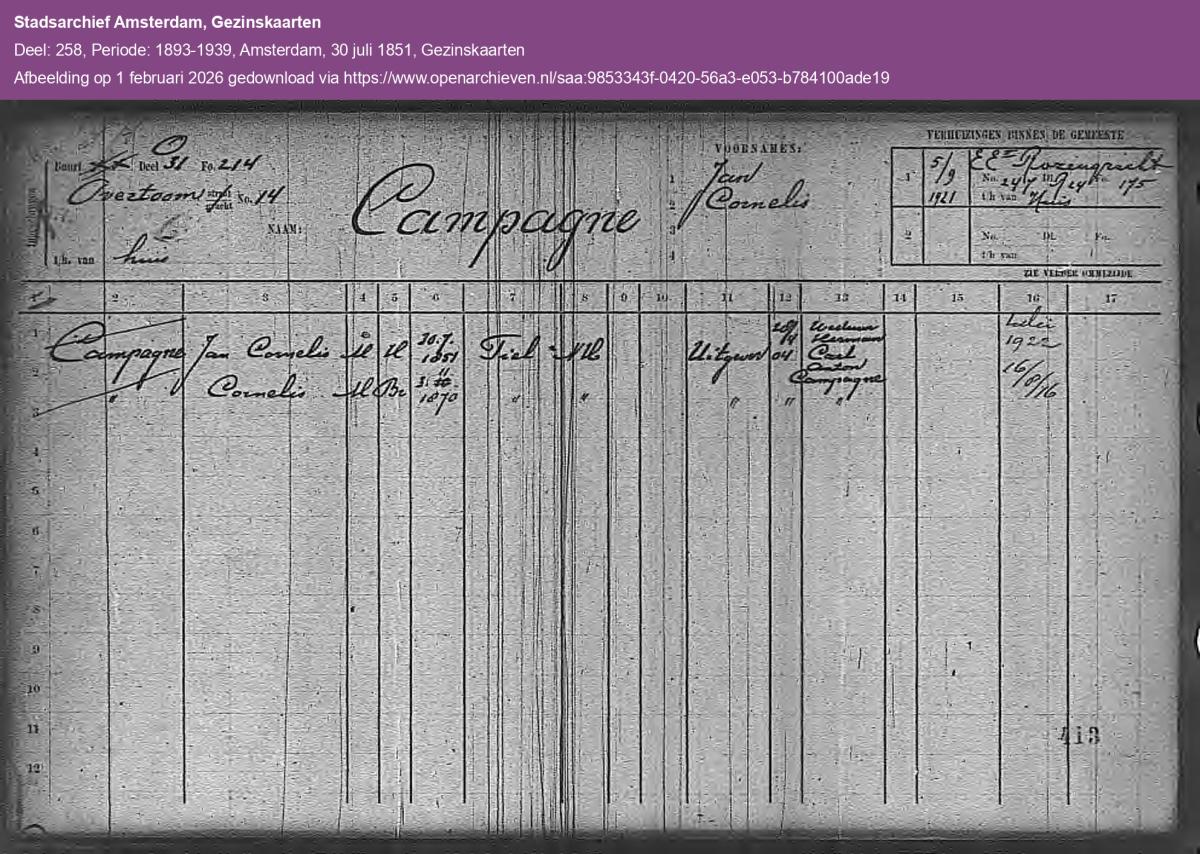 Stadsarchief Amsterdam, Gezinskaarten
Deel: 258, Periode: 1893-1939, Amsterdam, 30 juli 1851, Gezinskaarten
Afbeelding op 1 februari 2026 gedownload via https://www.openarchieven.nl/saa:9853343f-0420-56a3-e053-b784100ade19
VERHUIZINGEN BINNEN DE GEMEENTE
Buurt Deel 31 Fo. 214
Overtoom straat gracht No. 14
NAAM:
t.h. van huis
Campagne
VOORNAMEN:
1 Jan
2 Cornelis
3
4
1 5/9 1921 Rozengracht
No. Dl. 175
t/h van Huis
2 No. Dl. Fo.
t/h van
ZIE VERDER OMMEZIJDE
2 3 4 5 6 7 8 9 10 11 12 13 14 15 16 17
1 Campagne Jan Cornelis M H 30.7. 1851 Tiel NH Uitgever 04 Weduwe Herman Carl Anton Campagne 1922
2 " Cornelis M 1870 " " " " " 16/8/16
3
4
5
6
7
8
9
10
11
12
413